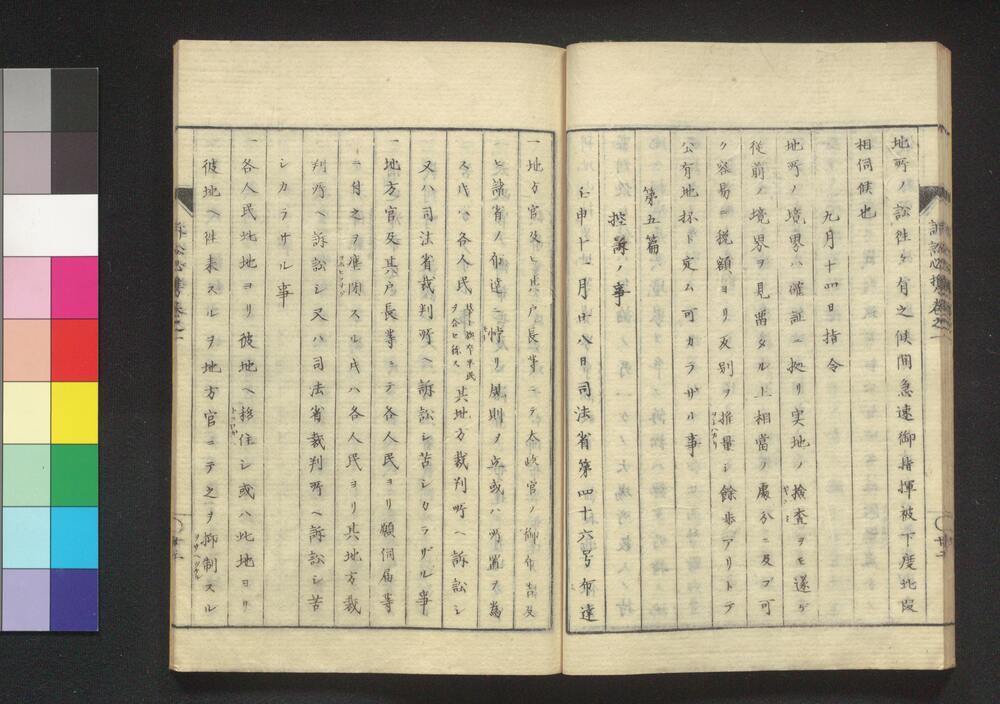 地所ノ訟往々有之候間急速御指揮被下度此段
相伺候也
九月十四日指令
地所ノ境界ハ確証ニ拠リ実地ノ撿査ヲモ遂ゲ
従前ノ境界ヲ見晋タル上相當ノ處分ニ及ブ可
ク容易ニ税額ヨリ反別ヲ推量シ餘歩アリトテ
公有地抔ト定ム可カラザル事
第五篇
控訴ノ事
壬申十一月廿八日司法省第四十六号布達
一地方官及ヒ其戸長等ニテ太政官ノ御布告及
ヒ諸省ノ布達ニ悖リ規則ヲ立或ハ所置ヲ為
ス時ハ各人民華士族卒平民ヲ合セ称ス其地方裁判所ヘ訴訟シ
又ハ司法省裁判所ヘ訴訟シ苦シカラザル事
一地方官及其戸長等ニテ各人民ヨリ願伺届等
ニ付之ヲ壅閉スル時ハ各人民ヨリ其地方裁
判所ヘ訴訟シ又ハ司法省裁判所ヘ訴訟シ苦
シカラサル事
一各人民此地ヨリ彼地ヘ移住シ或ハ此地ヨリ
彼地ヘ往来スルヲ地方官ニテ之ヲ抑制スル